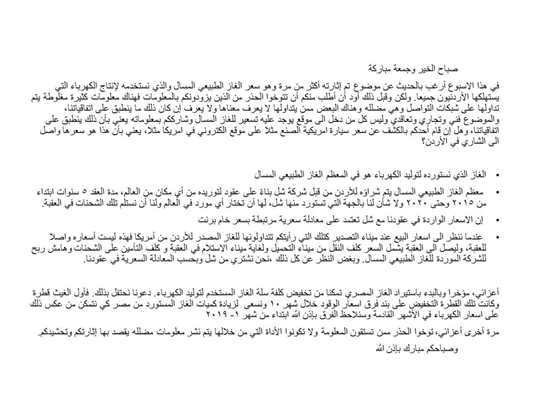 صباح الخير وجمعة مباركة
في هذا الاسبوع أرغب بالحديث عن موضوع تم إثارته أكثر من مرة وهو سعر الغاز الطبيعي المسال والذي نستخدمه لإنتاج الكهرباء التي
يستهلكها الأردنيون جميعا. ولكن وقبل ذلك أود أن أطلب منكم أن تتوخوا الحذر من الذين يزودونكم بالمعلومات فهناك معلومات كثيرة مغلوطة يتم
تداولها على شبكات التواصل وهي مضللة وهناك البعض ممن يتداولها لا يعرف معناها ولا يعرف إن كان ذلك ما ينطبق على اتفاقياتنا،
والموضوع فني وتجاري وتعاقدي وليس كل من دخل الى موقع يوجد عليه تسعير للغاز المسال وشارككم بمعلوماته يعني بأن ذلك ينطبق على
اتفاقياتنا، وهل إن قام أحدكم بالكشف عن سعر سيارة امريكية الصنع مثلا على موقع الكتروني في امريكا مثلا، يعني بأن هذا هو سعرها واصل
الى الشاري في الأردن؟
• الغاز الذي نستورده لتوليد الكهرباء هو في المعظم الغاز الطبيعي المسال
• معظم الغاز الطبيعي المسال يتم شراؤه للأردن من قبل شركة شل بناءً على عقود لتوريده من أي مكان من العالم، مدة العقد ٥ سنوات ابتداء
من ٢٠١٥ وحتى ٢٠٢٠ ولا شأن لنا بالجهة التي تستورد منها شل، لها أن تختار أي مورد في العالم ولنا أن نستلم تلك الشحنات في العقبة.
• إن الاسعار الواردة في عقودنا مع شل تعتمد على معادلة سعرية مرتبطة بسعر خام برنت
• عندما ننظر الى اسعار البيع عند ميناء التصدير كتلك التي رأيتكم تتداولونها للغاز المصدر للأردن من أمريكا فهذه ليست أسعاره واصلا
للعقبة، وليصل الى العقبة يشمل السعر كلف النقل من ميناء التحميل ولغاية ميناء الاستلام في العقبة و كلف التأمين على الشحنات وهامش ربح
للشركة الموردة للغاز الطبيعي المسال. وبغض النظر عن كل ذلك ،نحن نشتري من شل وبحسب المعادلة السعرية في عقودنا.
أعزائي، مؤخرا وبالبدء باستيراد الغاز المصري تمكنا من تخفيض كلفة سلة الغاز المستخدم لتوليد الكهرباء. دعونا نحتفل بذلك. فأول الغيث قطرة
وكانت تلك القطرة التخفيض على بند فرق اسعار الوقود خلال شهر ١٠ ونسعى لزيادة كميات الغاز المستورد من مصر كي نتمكن من عكس ذلك
على اسعار الكهرباء في الأشهر القادمة وسنلاحظ الفرق بإذن الله ابتداء من شهر ١- ٢٠١٩
مرة أخرى أعزائي، توخوا الحذر ممن تستقون المعلومة ولا تكونوا الأداة التي من خلالها يتم نشر معلومات مضلله يقصد بها إثارتكم وتحشيدكم.
وصباحكم مبارك بإذن الله